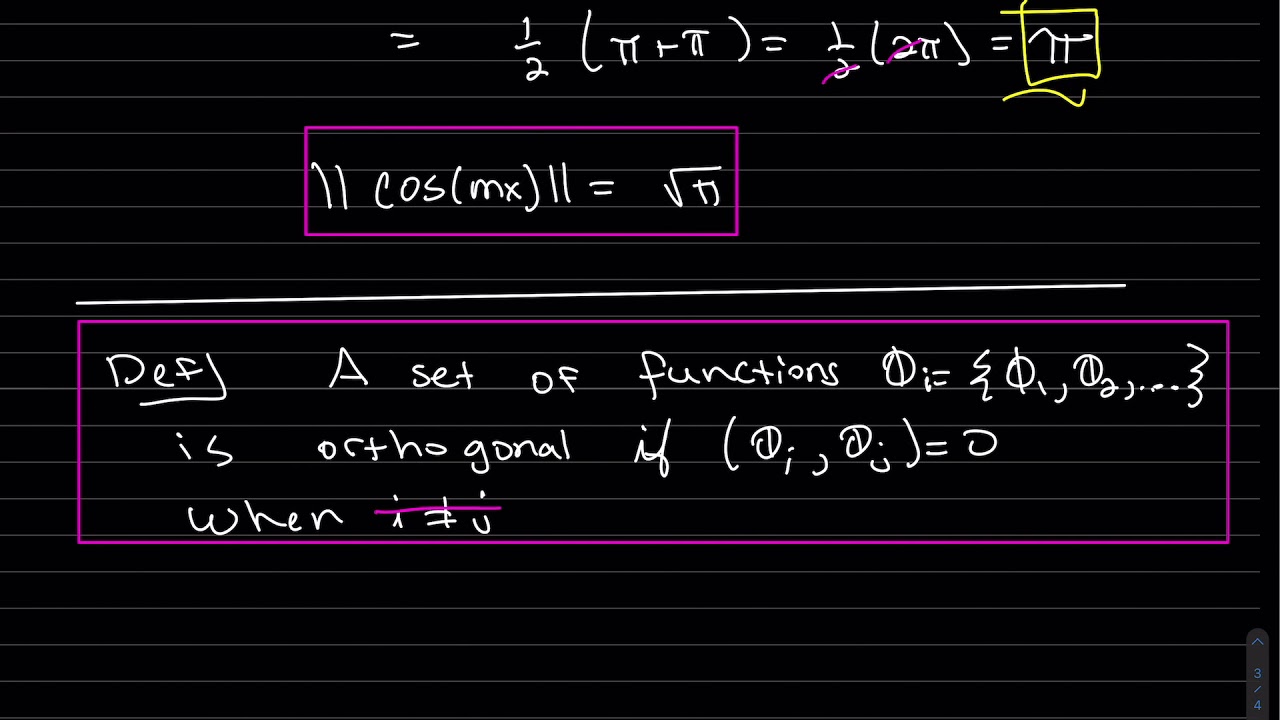 = 1/2 (π+π) = 1/2 (2π) = π
|| cos(mx) || = √π
Def) A set of functions Φi = {Φ1, Φ2, ....}
is orthogonal if (Φi, Φj) = 0
when i ≠ j
3
/
4